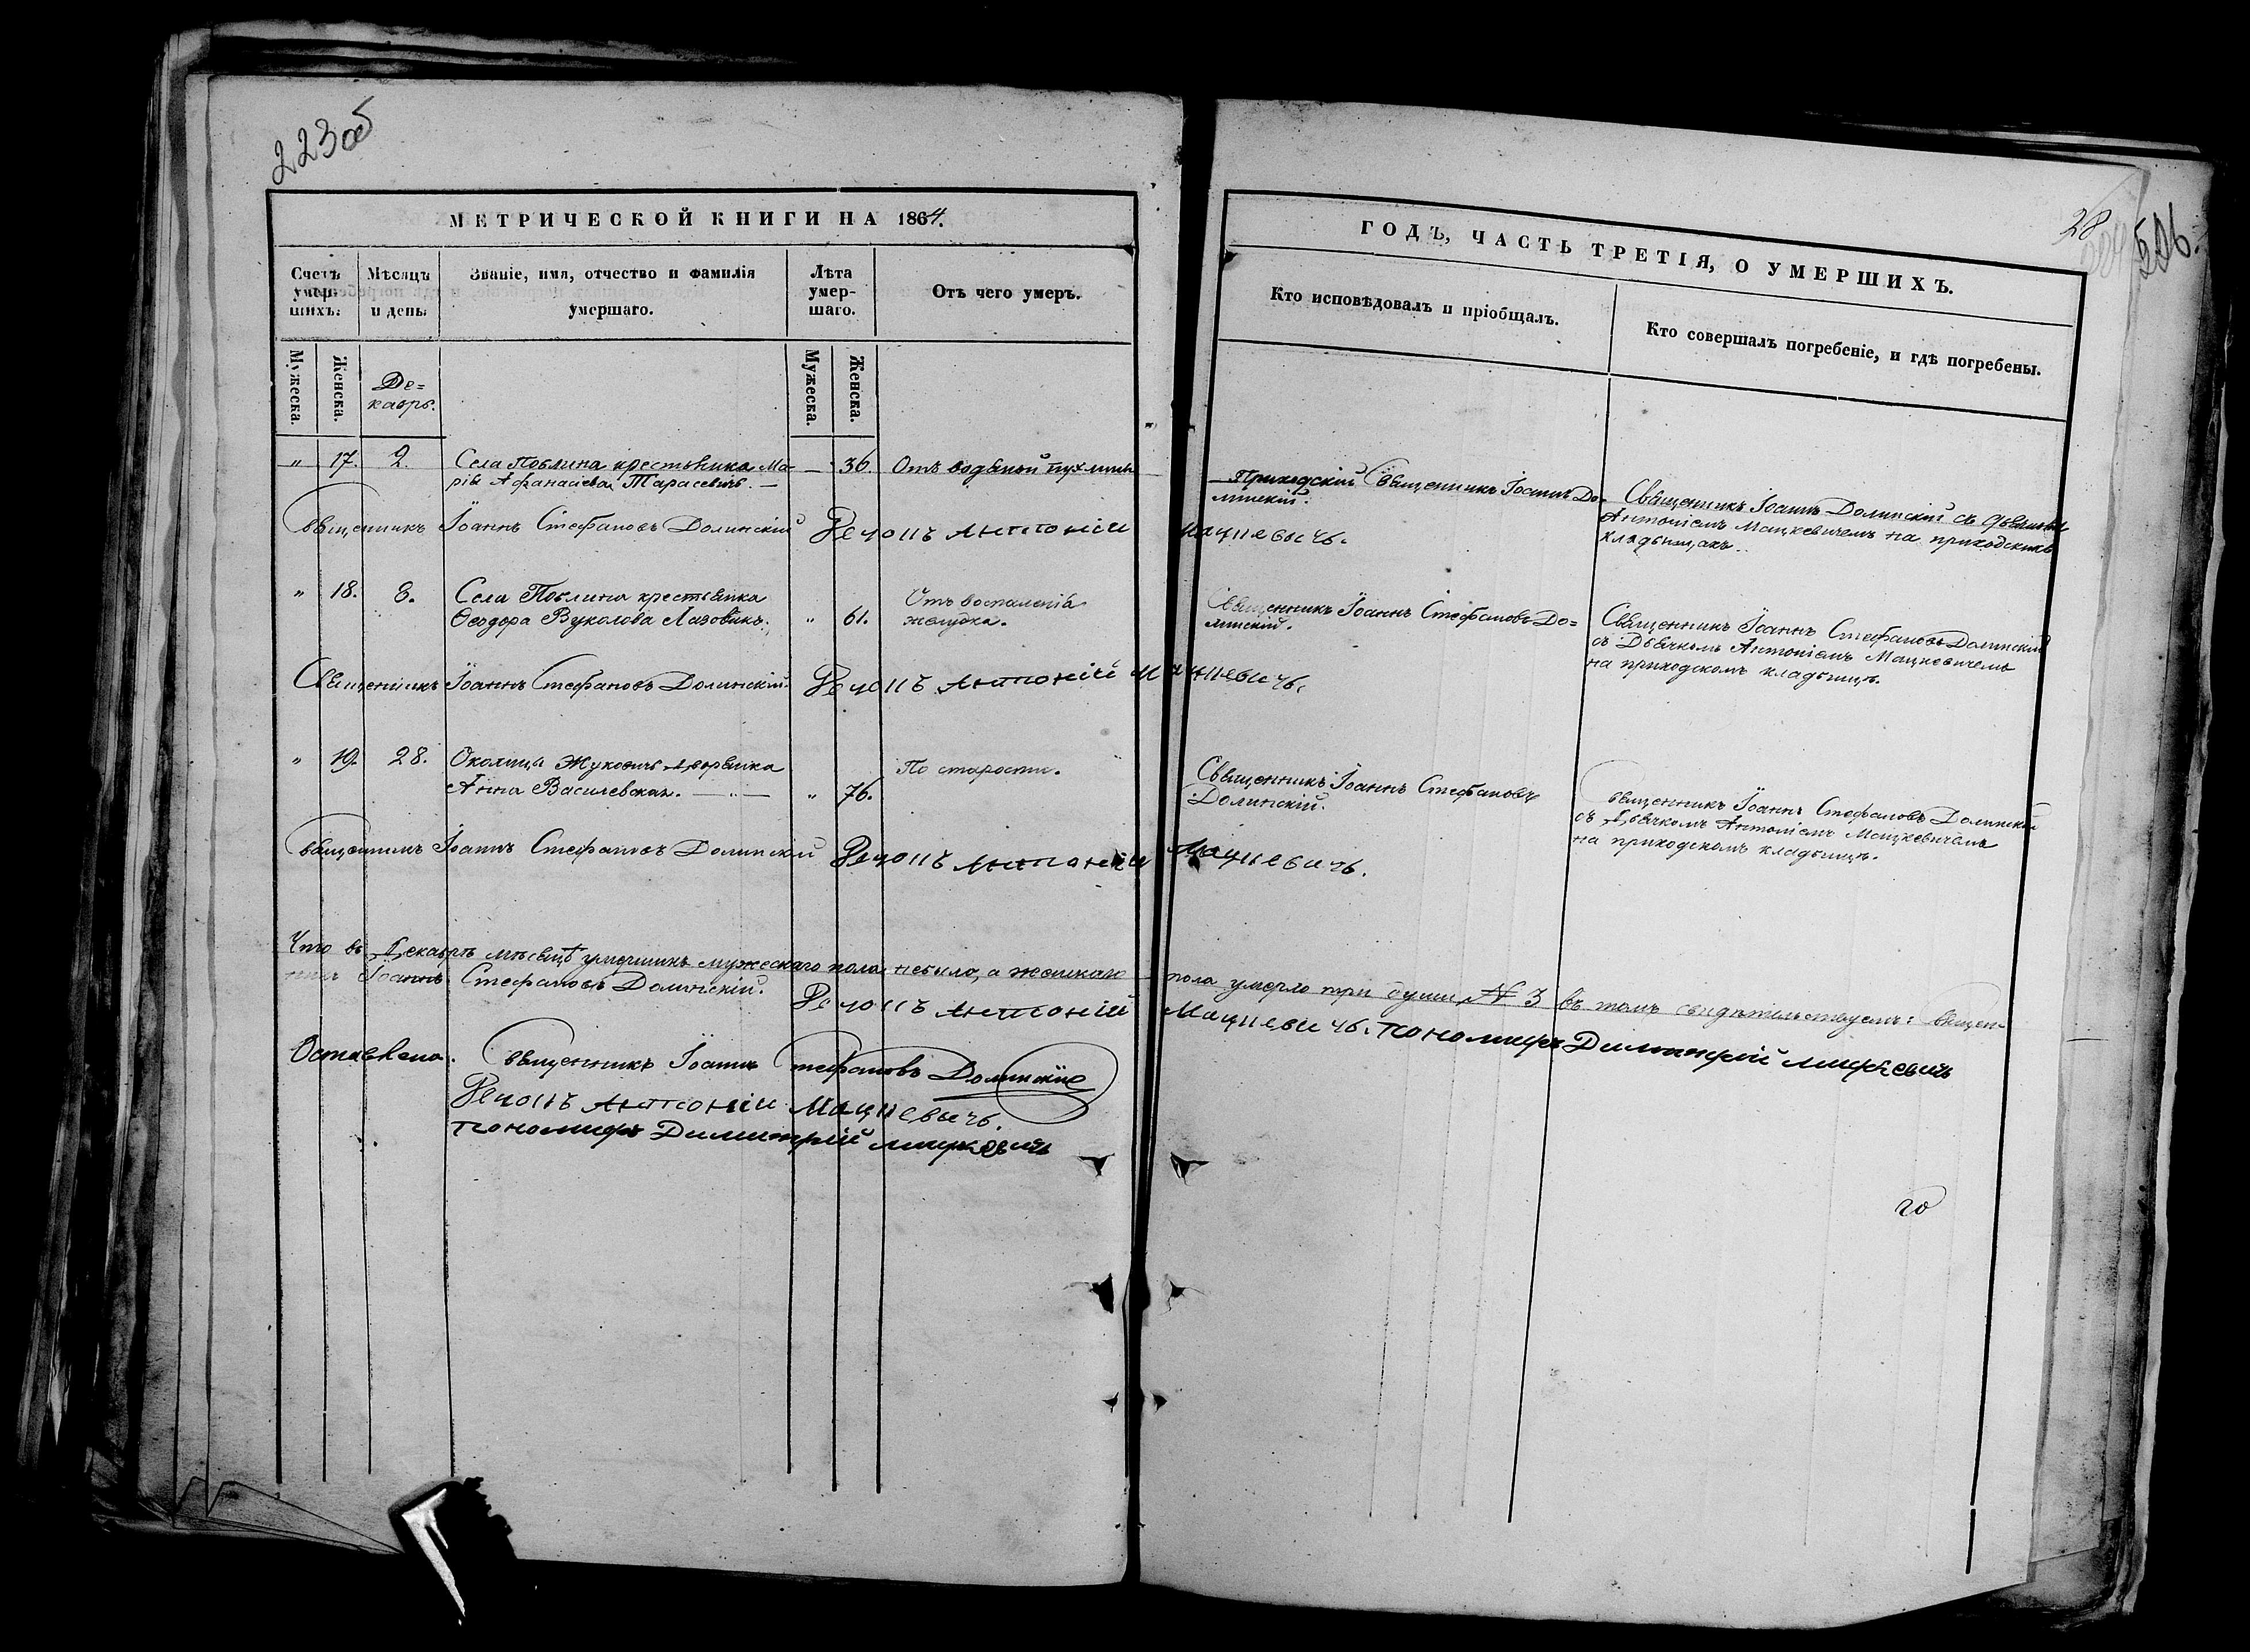 223об
МЕТРИЧЕСКОЙ КНИГИ НА 1864.
Счетъ умер-шихъ.
Мѣсяцъ и день.
Званіе, имя, отчество и фамилія умершаго.
Лѣта умер-шаго.
Отъ чего умеръ.
Мужеска.
Женска.
Де=
кабрь.
Мужеска.
Женска.
" 17. 2. Села Поблина крестьянка Ма- — 36. Отъ водяной пухлины
рія Афанасіева Тарасевичъ. —
Священникъ Іоаннъ Стефановъ Долинскій Дечокъ Антоній Мацкевичъ.
" 18. 8. Села Поблина крестьянка Отъ воспаленія
Ѳеодора Вуколова Лазовикъ. " 61. желудка.
Священникъ Іоаннъ Стефановъ Долинскій. Дечокъ Антоній Мацкевичъ.
" 19. 28. Околицы Жуковичъ дворянка По старости.
Анна Василевская. — " — " 76.
Священникъ Іоаннъ Стефановъ Долинскій Дечокъ Антоній Мацкевичъ.
Что въ Декабрѣ мѣсяцѣ умершихъ мужескаго пола небыло, а женскаго пола умерло три души, № 3 въ томъ свидѣтельствуемъ: Священ-
никъ Іоаннъ Стефановъ Долинскій. Дечокъ Антоній Мацкевичъ. Пономаръ Димитрій
Священникъ Іоаннъ Стефановъ Долинскій
Дечокъ Антоній Мацкевичъ.
Пономаръ Димитрій
28
ГОДЪ, ЧАСТЬ ТРЕТІЯ, О УМЕРШИХЪ.
Кто исповѣдовалъ и пріобщалъ.
Кто совершалъ погребеніе, и гдѣ погребены.
Приходскій Священникъ Іоаннъ До-
линскій.
Священникъ Іоаннъ Долинскій съ Дьячкомъ
Антоніемъ Мацкевичемъ на приходскихъ
кладбищахъ.
Священникъ Іоаннъ Стефановъ До=
линскій.
Священникъ Іоаннъ Стефановъ Долинскій
съ Дьячкомъ Антоніемъ Мацкевичемъ
на приходскомъ кладбищѣ.
Священникъ Іоаннъ Стефановъ
Долинскій.
Священникъ Іоаннъ Стефановъ Долинскій
съ Дьячкомъ Антоніемъ Мацкевичемъ
на приходскомъ кладбищѣ.